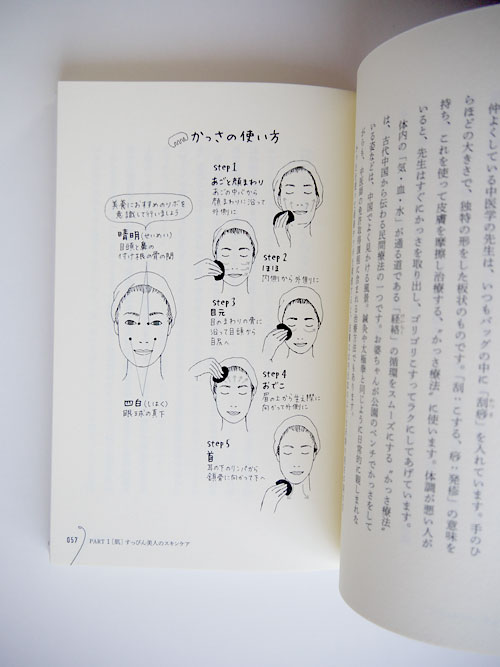 かっさの使い方
美養におすすめのツボを
意識して行いましょう
晴明(せいめい)
目頭と鼻の
付け根の骨の間
四白(しはく)
眼球の真下
step1
あごと顔まわり
あごの中心から
顔まわりに沿って
外側に
step2
ほほ
内側から外側に
step3
目元
目のまわりの骨に
沿って目頭から
目尻へ
step4
おでこ
眉の上から生え際に
向かって外側に
step5
首
耳の下のリンパから
鎖骨に向かって下へ
057 PART 1 [肌] すっぴん美人のスキンケア
仲よくしている中医学の先生は、いつもバッグの中に「刮痧」を入れています。手のひ
らほどの大きさで、独特の形をした板状のものです。「刮:こする、痧:発疹」の意味を
持ち、これを使って皮膚を摩擦し治療する、〝かっさ療法〟に使います。体調が悪い人が
いると、先生はすぐにかっさを取り出し、ゴリゴリこすってラクにしてあげています。
体内の「気・血・水」が通る道である「経絡」の循環をスムーズにする〝かっさ療法〟
は、古代中国から伝わる民間療法の一つです。お婆ちゃんが公園のベンチでかっさをして
いる姿などは、中国でよく見かける風景。鍼灸や太極拳と同じように日常的に親しまれな
がらも、中医師の免許取得課程に含まれる治療方法でもあります。